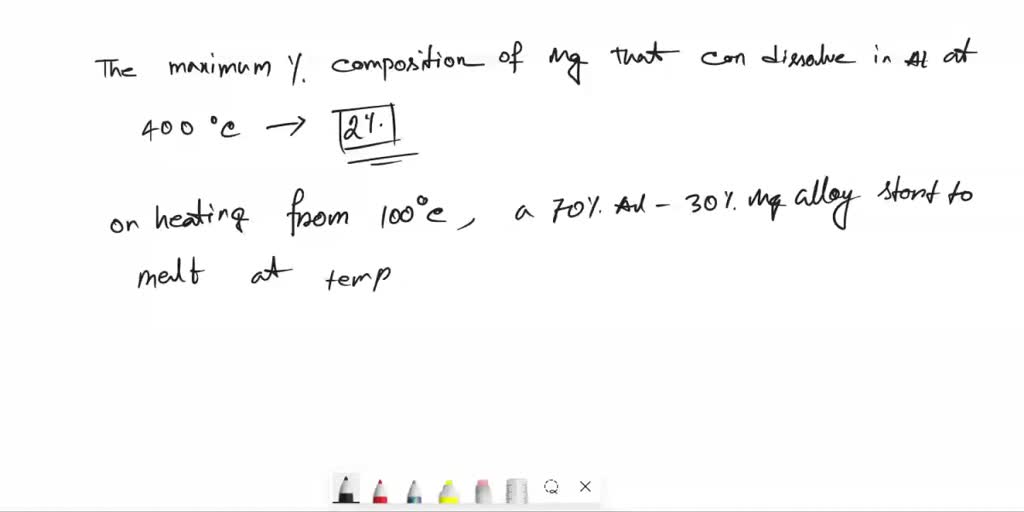 The maximum % composition of Mg that can dissolve in Al at
400 °C → 2%.
on heating from 100°C, a 70% Al - 30% Mg alloy start to
melt at temp